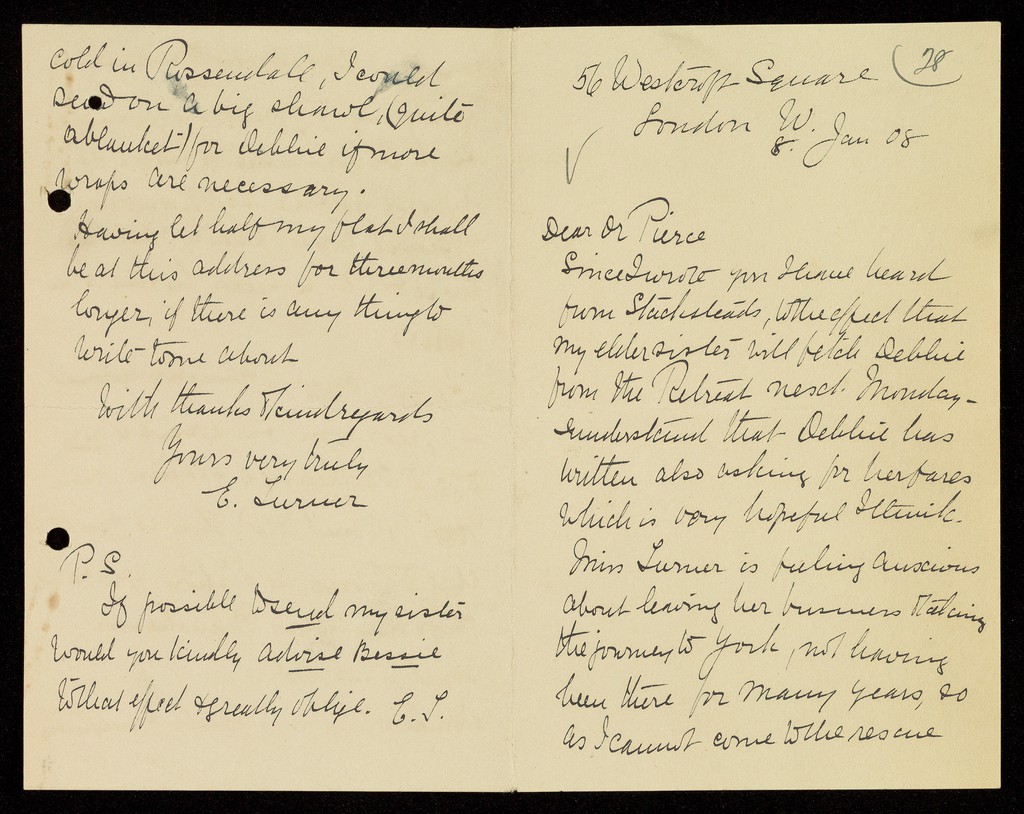 28
56 Westcroft Square
London W.
8. Jan 08
Dear Dr Pierce
Since I wrote you I have heard
from Stacksteads, to the effect that
my elder sister will fetch Debbie
from the Retreat next Monday -
I understand that Debbie has
written also asking for her fares
which is very hopeful I think.
Miss Turner is feeling anxious
about leaving her business & taking
the journey to York, not having
been there for many years, so
as I cannot come to the rescue
cold in Rossendall, I could
send on a big shawl, (quite
a blanket) for Debbie if more
wraps are necessary.
Having let half my flat I shall
be at this address for three months
longer, if there is any thing to
write to me about
With thanks & kind regards
Yours very truly
E. Turner
P. S.
If possible to send my sister
would you kindly advise Bessie
to that effect & greatly oblige. E. T.